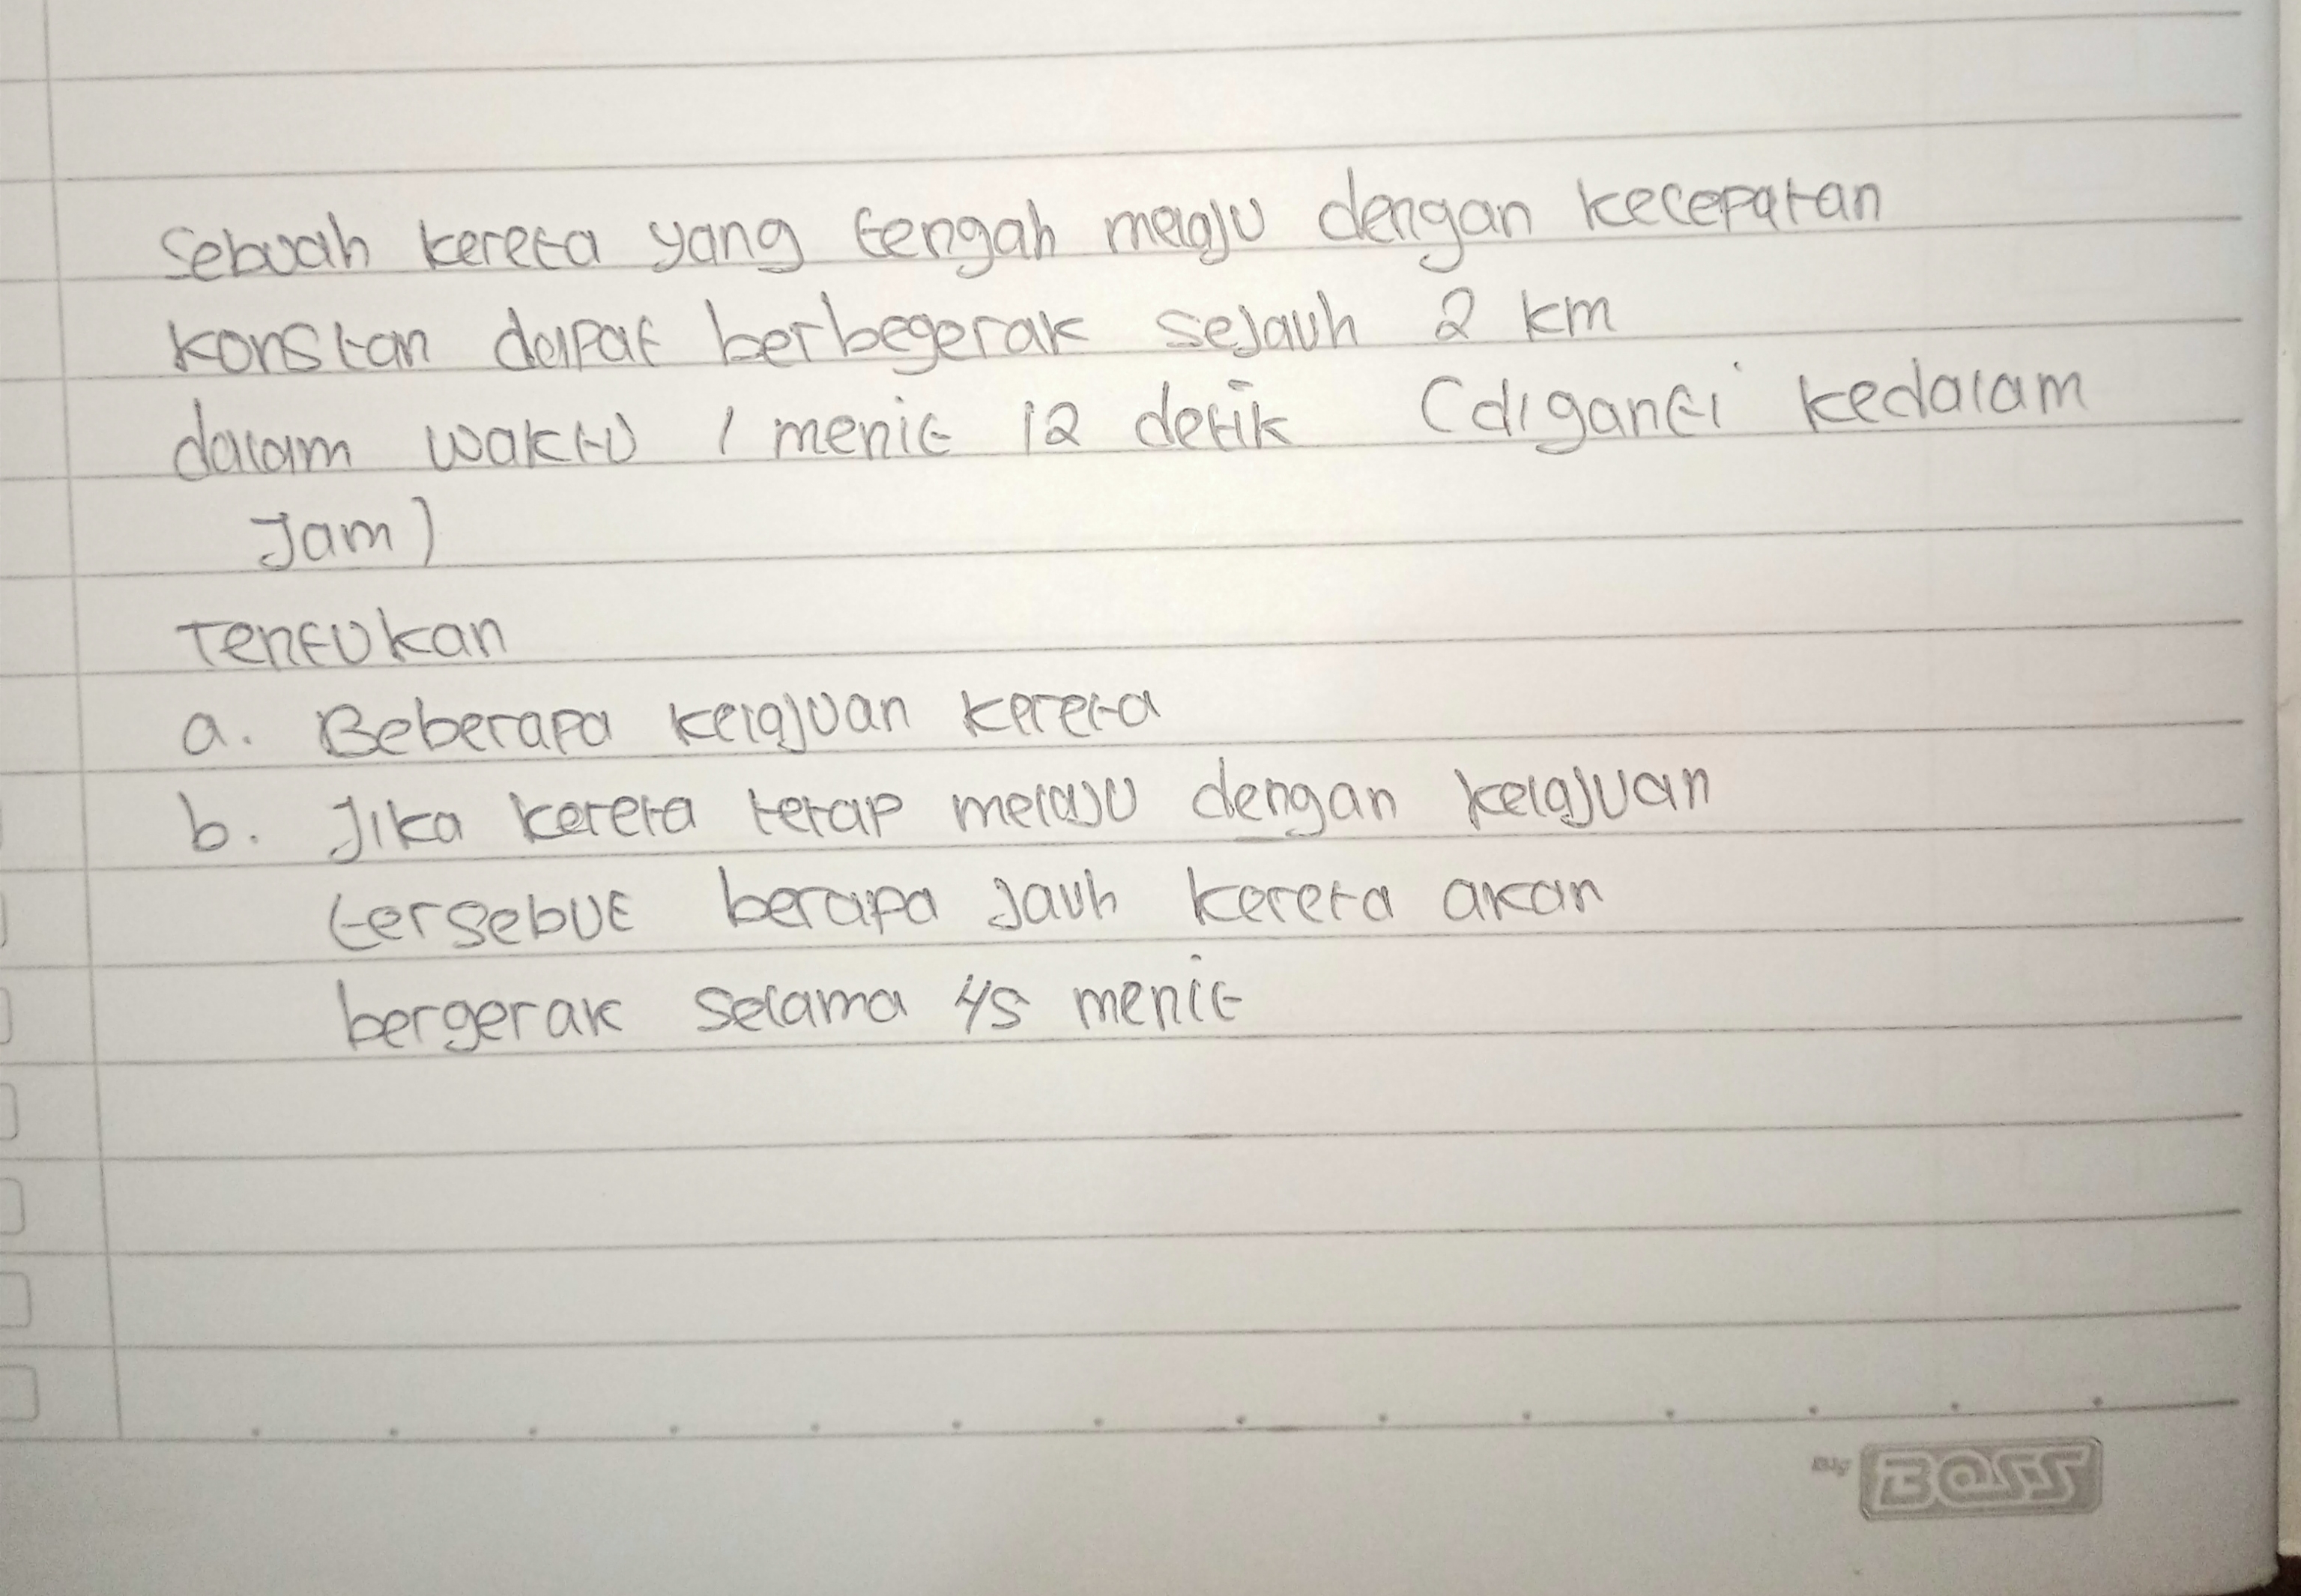 Sebuah kereta yang tengah melaju dengan kecepatan
konstan dapat berbegerak sejauh 2 km
dalam waktu 1 menit 12 detik (diganti kedalam
Jam)
Tentukan
a. Beberapa kelajuan kereta
b. Jika kereta tetap melaju dengan kelajuan
tersebut berapa jauh kereta akan
bergerak selama 45 menit
Big BOSS